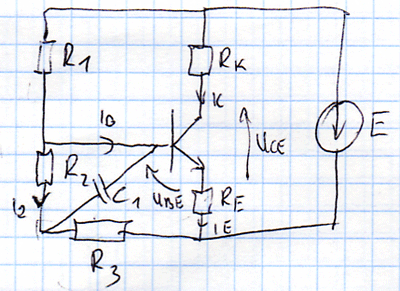 R1
RK
IB
IK
E
UCE
R2
C1
UBE
RE
I2
IE
R3